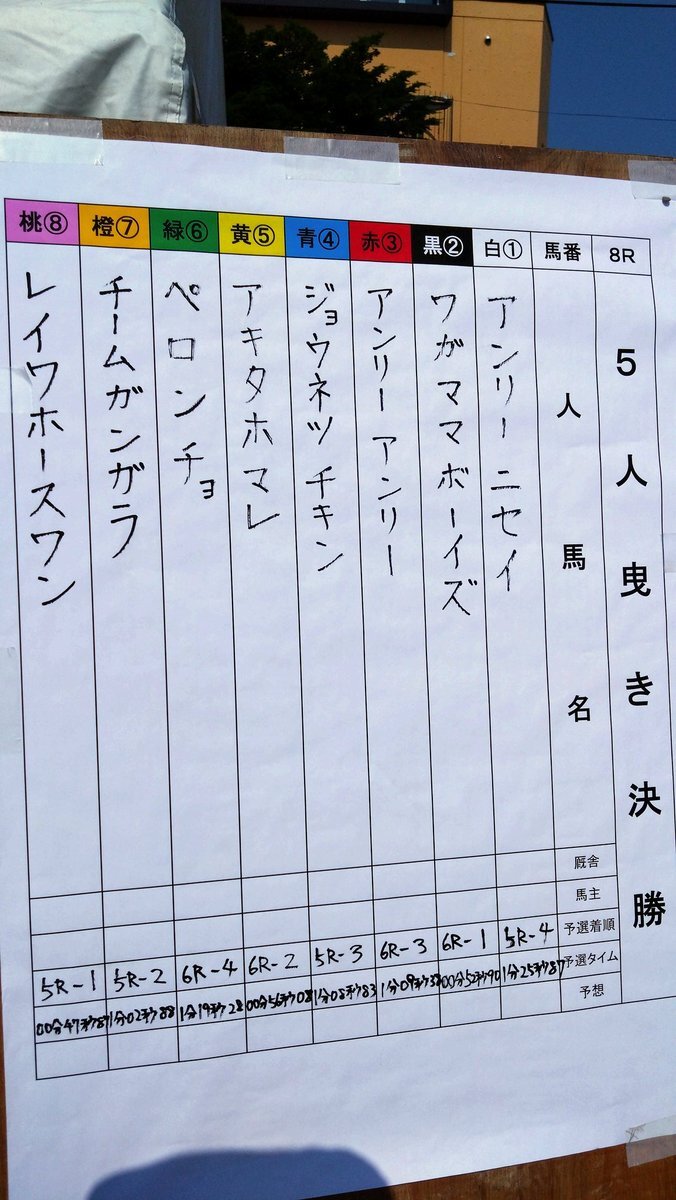 8R
5人曳き決勝
馬番
人馬名
厩舎
馬主
予選着順
予選タイム
予想
白①
アンリーニセイ
5R-4
1分25秒87
黒②
ワガママボーイズ
6R-1
00分52秒90
赤③
アンリーアンリー
6R-3
1分09秒38
青④
ジョウネツチキン
5R-3
1分08秒83
黄⑤
アキタホマレ
6R-2
00分56秒08
緑⑥
ペロンチョ
6R-4
1分19秒28
橙⑦
チームガンガラ
5R-2
1分02秒88
桃⑧
レイワホースワン
5R-1
00分47秒87